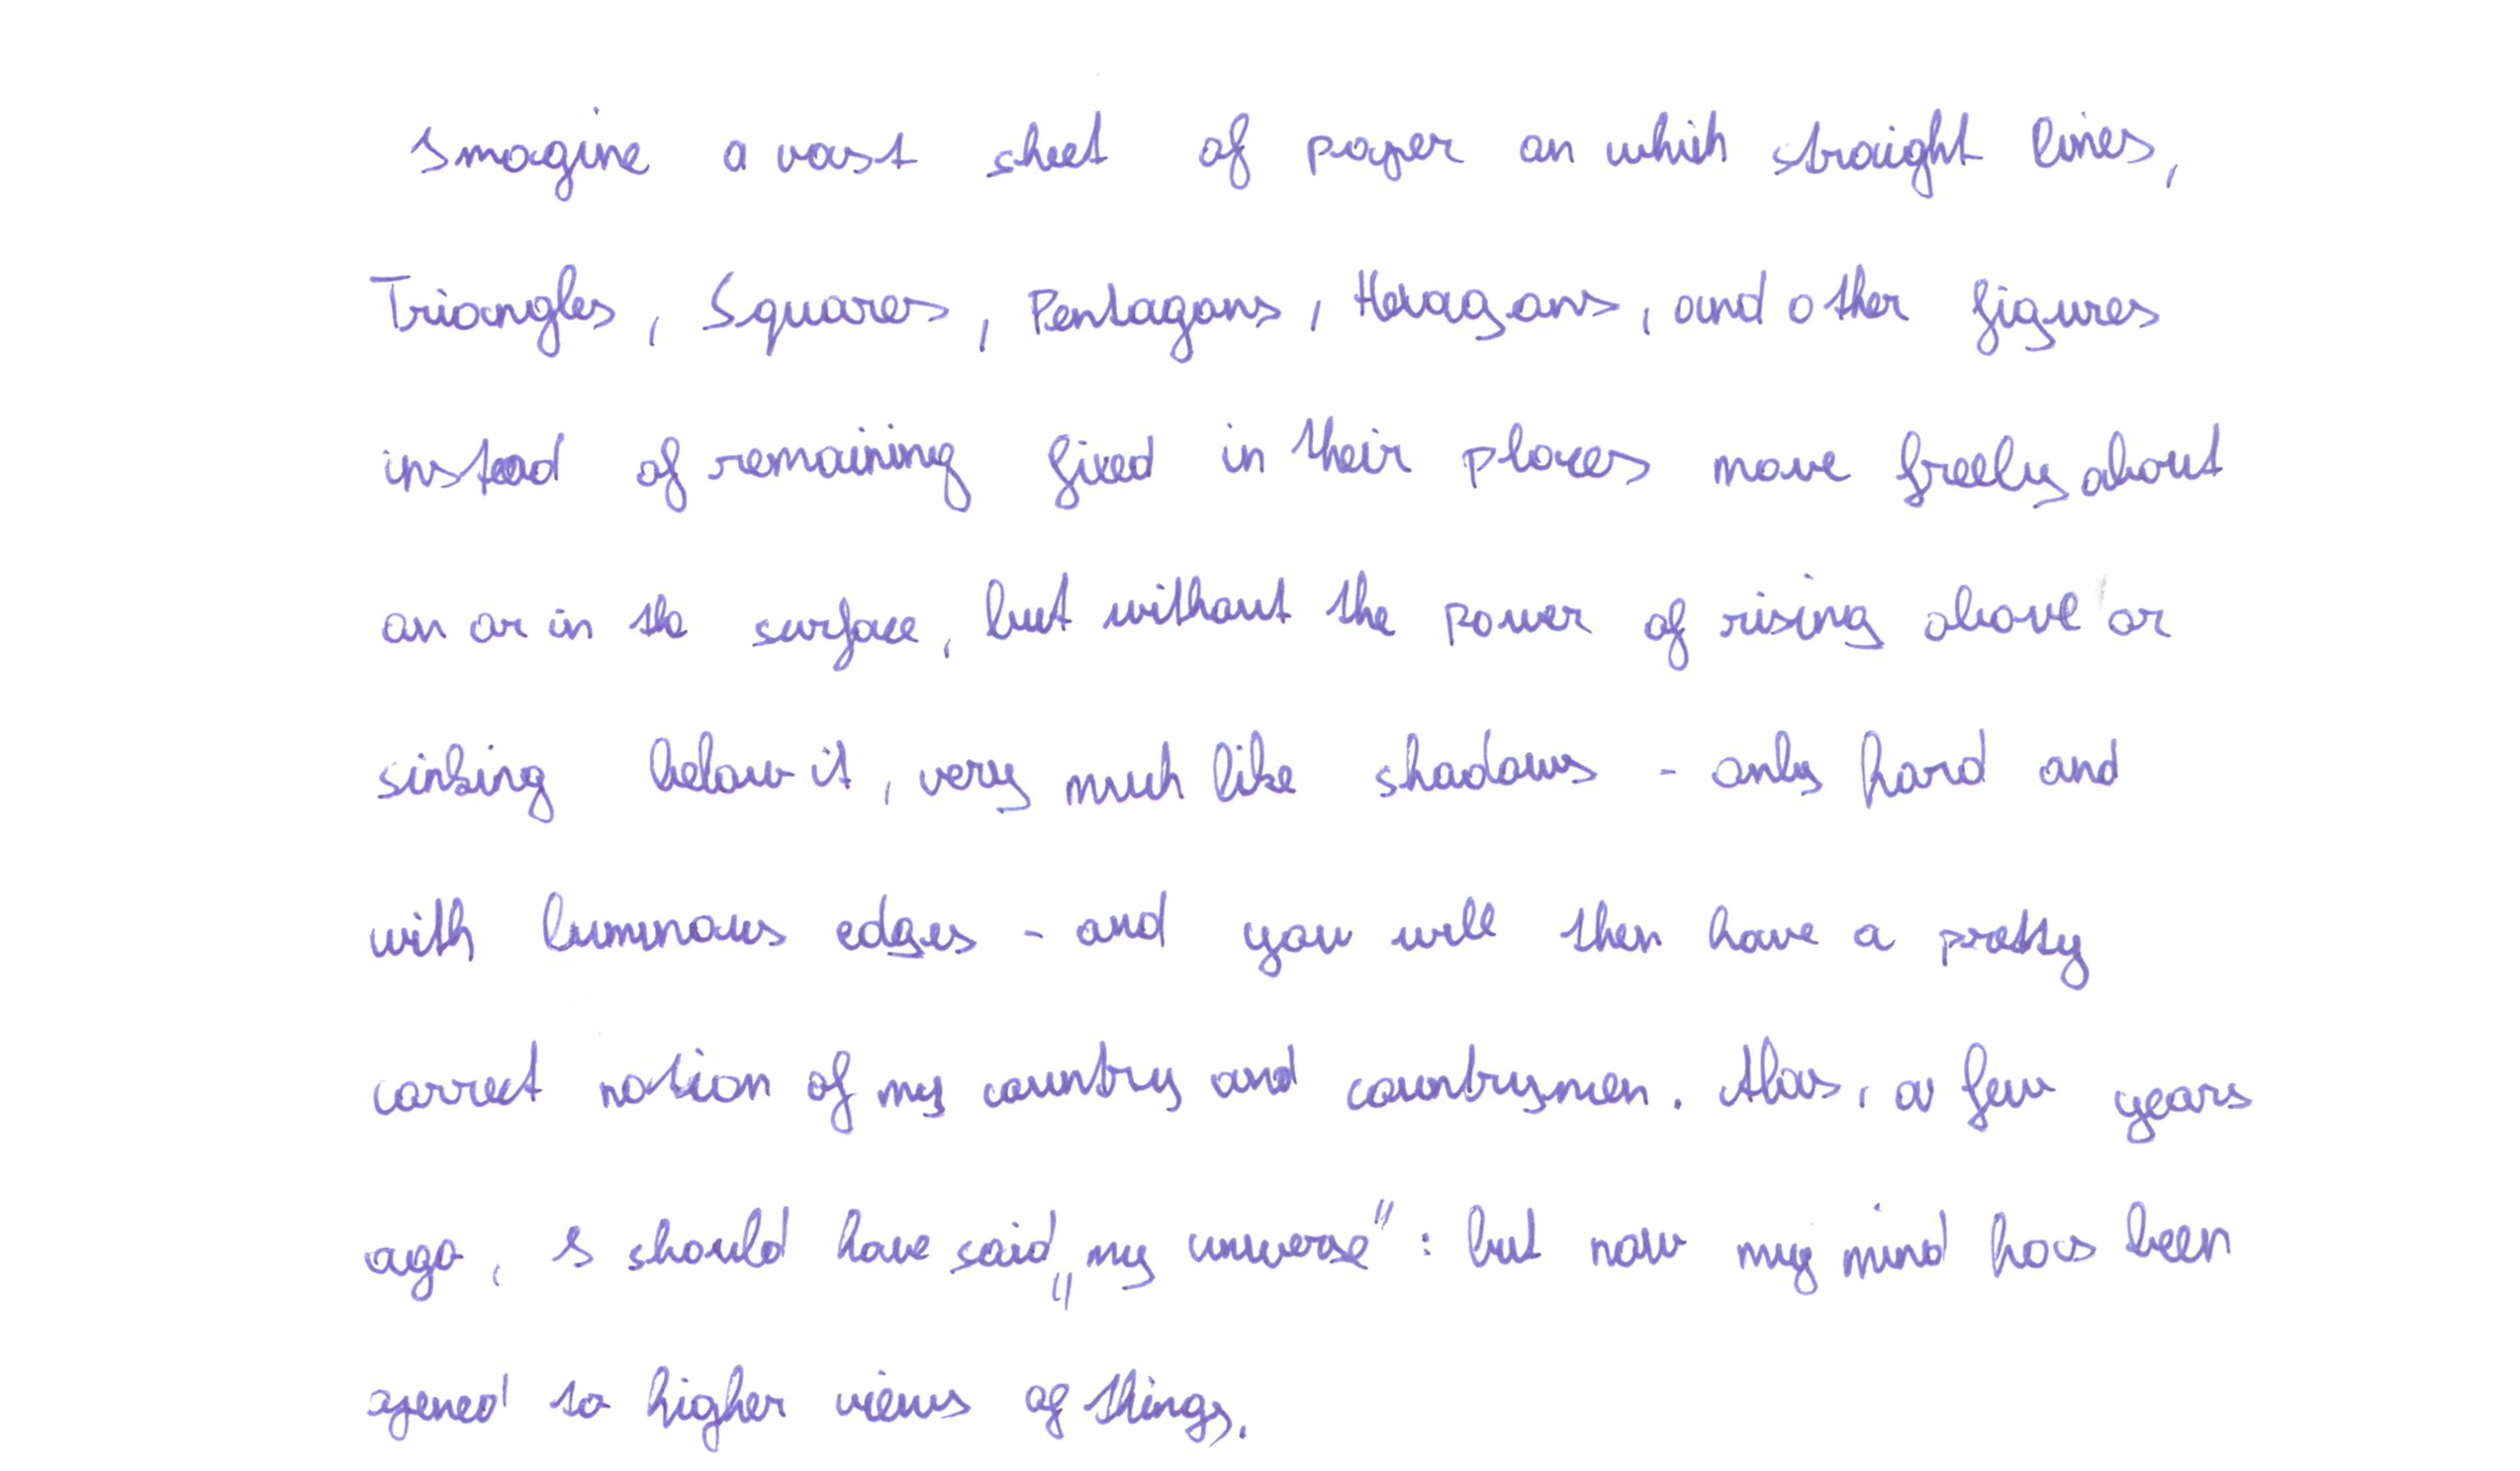 Imagine a vast sheet of paper on which straight lines,
Triangles, Squares, Pentagons, Hexagons, and other figures
instead of remaining fixed in their places move freely about
on or in the surface, but without the power of rising above or
sinking below it, very much like shadows - only hard and
with luminous edges - and you will then have a pretty
correct notion of my country and countrymen. Alas, a few years
ago, I should have said „my universe": but now my mind has been
opened to higher views of things.